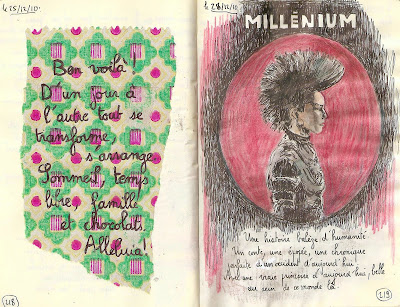 le 25/12/10.
Ben voilà !
D'un jour à
l'autre tout se
transforme,
s'arrange
Sommeil, temps
libre, famille
et chocolats.
Alléluia !
218
le 28/12/10.
MILLÉNIUM
Une histoire balèze d'humanité.
Un conte, une épopée, une chronique
parfaite d'un occident d'aujourd'hui.
une vraie princesse d'aujourd'hui, belle
au sein de ce monde là.
219